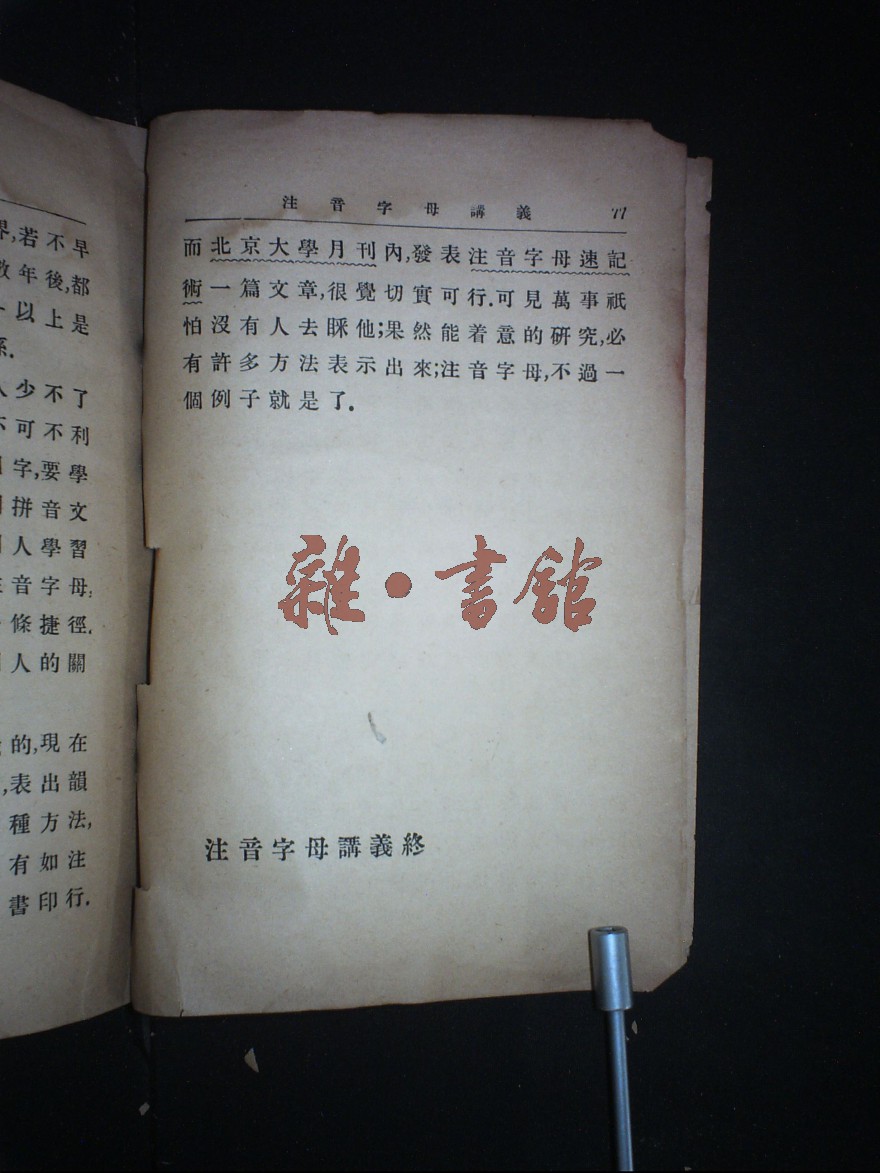 界,若不早
數年後,都
以上是
係.
人少不了
不可不利
字,要學
拼音文
人學習
注音字母,
條捷徑.
人的關
的,現在
,表出韻
種方法,
有如注
書印行.
注音字母講義 77
而北京大學月刊內,發表注音字母速記
術一篇文章,很覺切實可行.可見萬事祇
怕沒有人去睬他;果然能着意的研究,必
有許多方法表示出來;注音字母,不過一
個例子就是了.
雜•書館
注音字母講義終